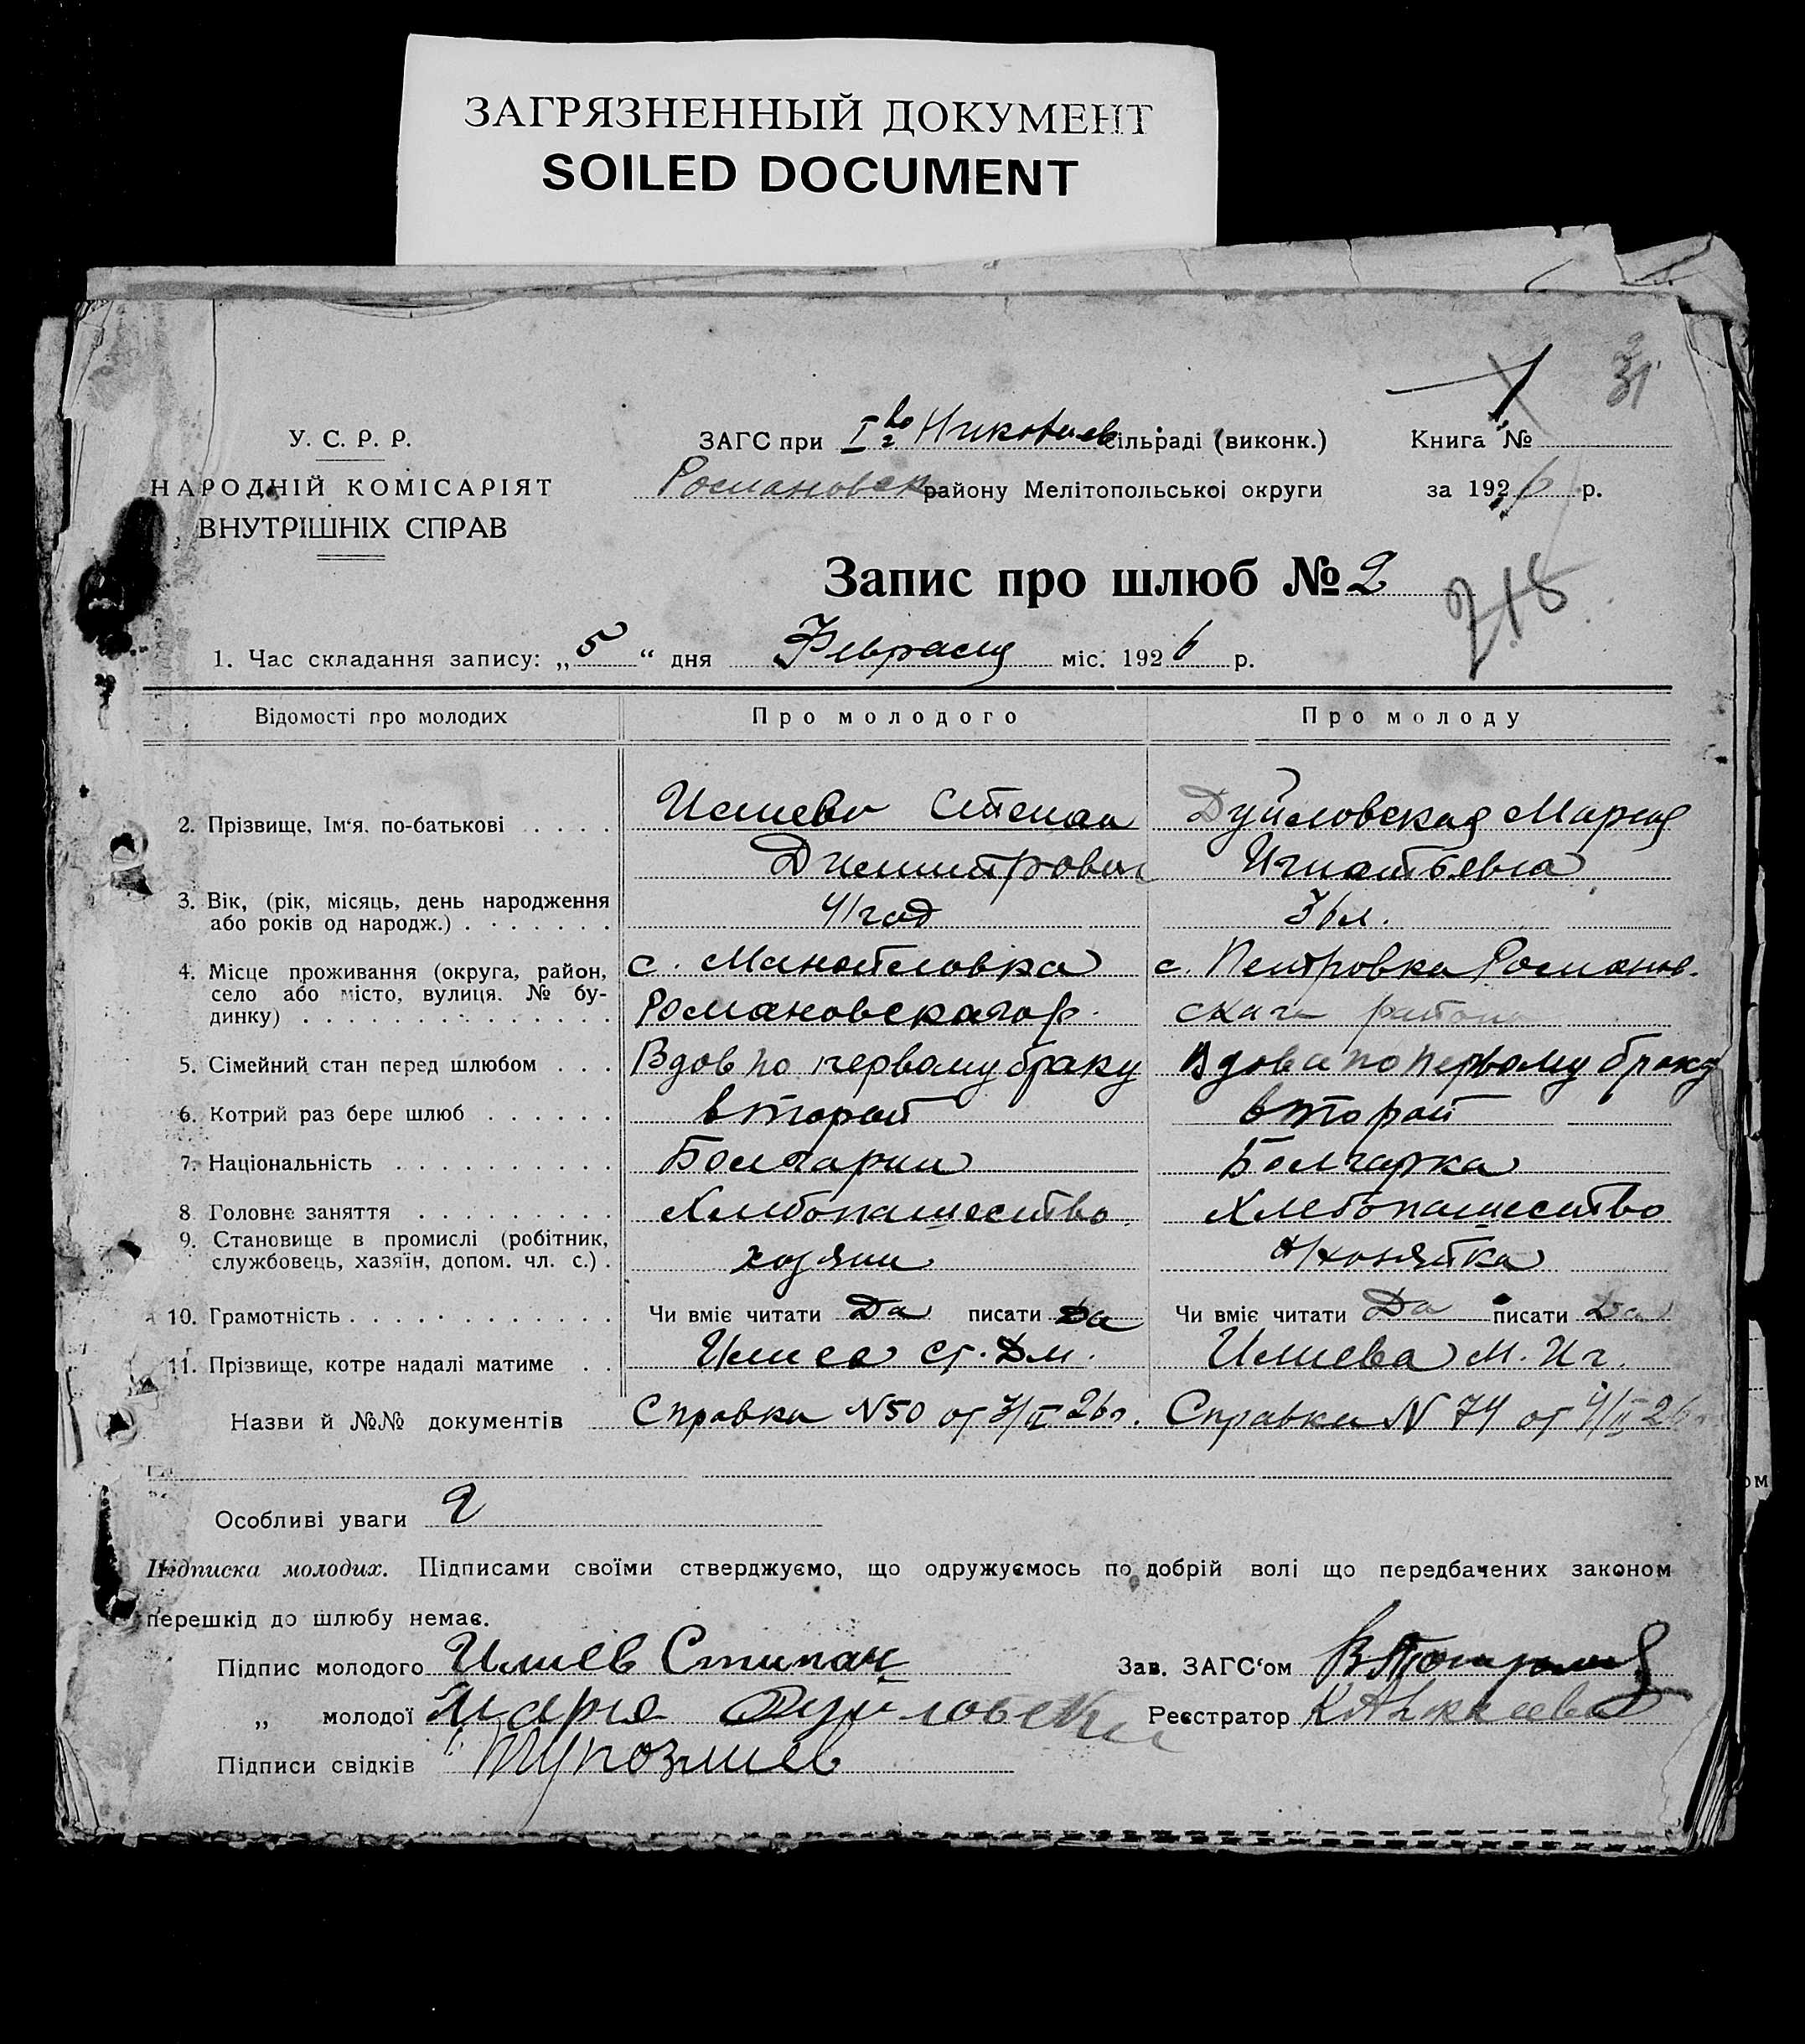 ЗАГРЯЗНЕННЫЙ ДОКУМЕНТ
SOILED DOCUMENT
31
У. С. Р. Р.
НАРОДНІЙ КОМІСАРІЯТ
ВНУТРІШНІХ СПРАВ
ЗАГС при сільраді (виконк.) Книга №
Романовск району Мелітопольської округи за 1926 р.
Запис про шлюб № 2
1. Час складання запису: „5“ дня Февраля міс. 1926 р.
Відомості про молодих Про молодого Про молоду
2. Прізвище, Ім'я, по-батькові . . . . Илиев Степан Дуйловская Мария
Димитрович Игнатьевна
3. Вік, (рік, місяць, день народження
або років од народж.) . . . . . . . 41 год 36 л.
4. Місце проживання (округа, район, с. Манойловка с. Петровка Романов-
село або місто, вулиця, № бу-
динку) . . . . . . . . . . . . . . Романовского р. ского района
5. Сімейний стан перед шлюбом . . . Вдов по первому браку Вдова по первому браку
6. Котрий раз бере шлюб . . . . . . второй второй
7. Національність . . . . . . . . . . . Болгарин Болгарка
8 Головне заняття . . . . . . . . . Хлебопашество Хлебопашество
9. Становище в промислі (робітник,
службовець, хазяїн, допом. чл. с.) . хозяин
10. Грамотність . . . . . . . . . . . . . Чи вміє читати Да писати Да Чи вміє читати Да писати Да
11. Прізвище, котре надалі матиме . . Илиев Ст. Дм. Илиева М. Иг.
Назви й №№ документів Справка N 50 от 3/II 26 г. Справка N 74 от 4/II 26
Особливі уваги 2
Підписка молодих. Підписами своїми стверджуємо, що одружуємось по добрій волі що передбачених законом
перешкід до шлюбу немає.
Підпис молодого Илиев Стипан Зав. ЗАГС'ом
„ молодої Мария Дуйловска Реєстратор
Підписи свідків